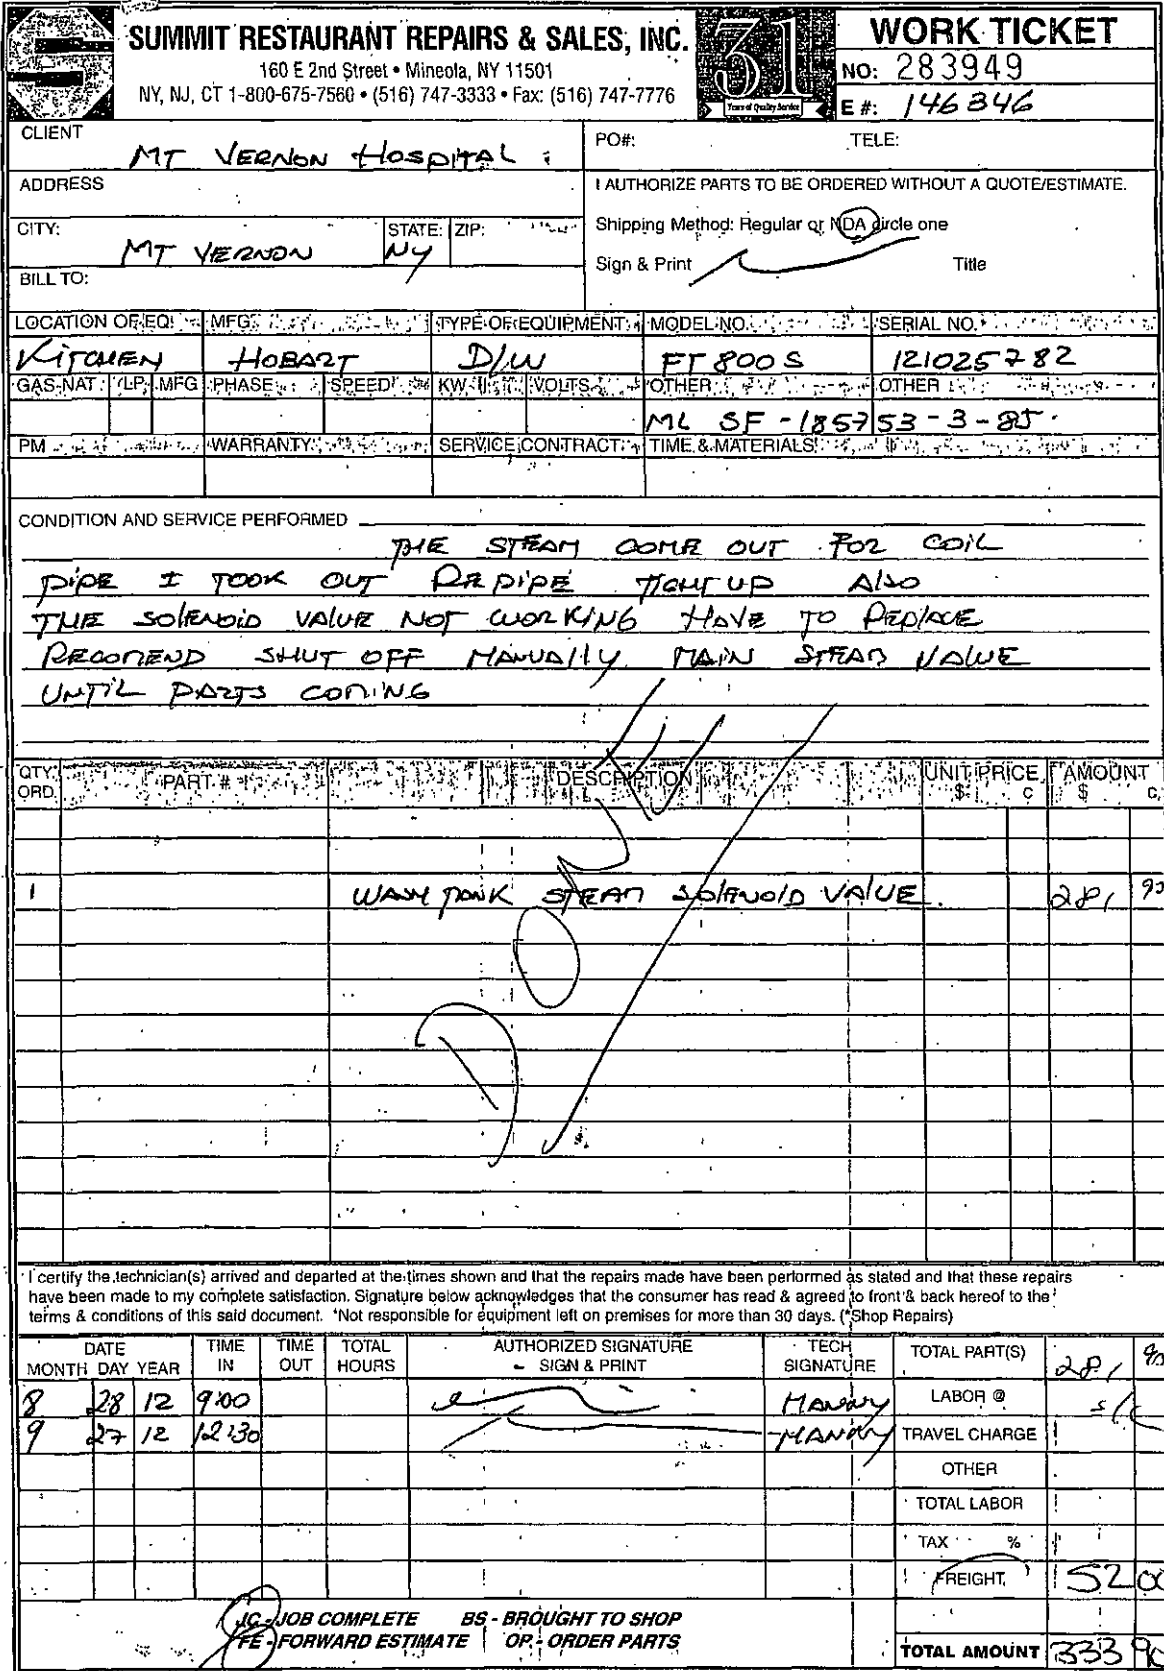 SUMMIT RESTAURANT REPAIRS & SALES, INC.
160 E 2nd Street • Mineola, NY 11501
NY, NJ, CT 1-800-675-7560 • (516) 747-3333 • Fax: (516) 747-7776
31
Years of Quality Service
WORK TICKET
NO: 283949
E #: 146346
CLIENT MT VERNON HOSPITAL
PO#: TELE:
ADDRESS
I AUTHORIZE PARTS TO BE ORDERED WITHOUT A QUOTE/ESTIMATE.
CITY: MT VERNON STATE: NY ZIP:
Shipping Method: Regular or NDA circle one
Sign & Print Title
BILL TO:
LOCATION OF EQ. MFG. TYPE OF EQUIPMENT MODEL NO. SERIAL NO.
KITCHEN HOBART D/W FT 800 S 121025782
GAS-NAT LP MFG PHASE SPEED KW VOLTS OTHER OTHER
ML SF -185753-3-85
PM WARRANTY SERVICE CONTRACT TIME & MATERIALS
CONDITION AND SERVICE PERFORMED
THE STEAM COME OUT FOR COIL
PIPE I TOOK OUT REPIPE TIGHT UP ALSO
THE SOLENOID VALUE NOT WORKING HAVE TO REPLACE
RECOMEND SHUT OFF MANUALLY MAIN STEAM VALUE
UNTIL PARTS COMING
QTY. ORD. PART # DESCRIPTION UNIT PRICE $ C AMOUNT $ C
1 WASH TANK STEAM SOLENOID VALUE. 281 90
DONE
I certify the technician(s) arrived and departed at the times shown and that the repairs made have been performed as stated and that these repairs
have been made to my complete satisfaction. Signature below acknowledges that the consumer has read & agreed to front & back hereof to the
terms & conditions of this said document. *Not responsible for equipment left on premises for more than 30 days. (*Shop Repairs)
DATE MONTH DAY YEAR TIME IN TIME OUT TOTAL HOURS AUTHORIZED SIGNATURE - SIGN & PRINT TECH SIGNATURE TOTAL PART(S) 281 90
8 28 12 9:00 MANNY LABOR @ s/c
9 27 12 12:30 MANNY TRAVEL CHARGE
OTHER
TOTAL LABOR
TAX %
FREIGHT 52 00
JC - JOB COMPLETE BS - BROUGHT TO SHOP
FE - FORWARD ESTIMATE OP - ORDER PARTS
TOTAL AMOUNT 333 90